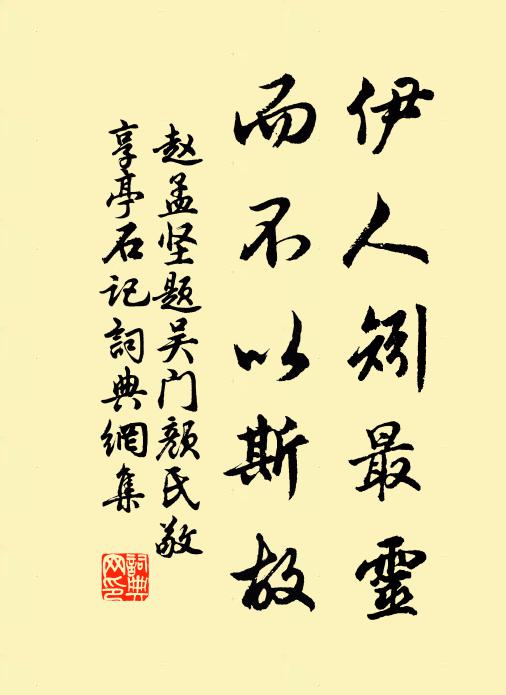 伊人矧最靈
而不以斯故
赵孟坚题吴门颜氏敬
享亭石记詞典網集
詞典
网印